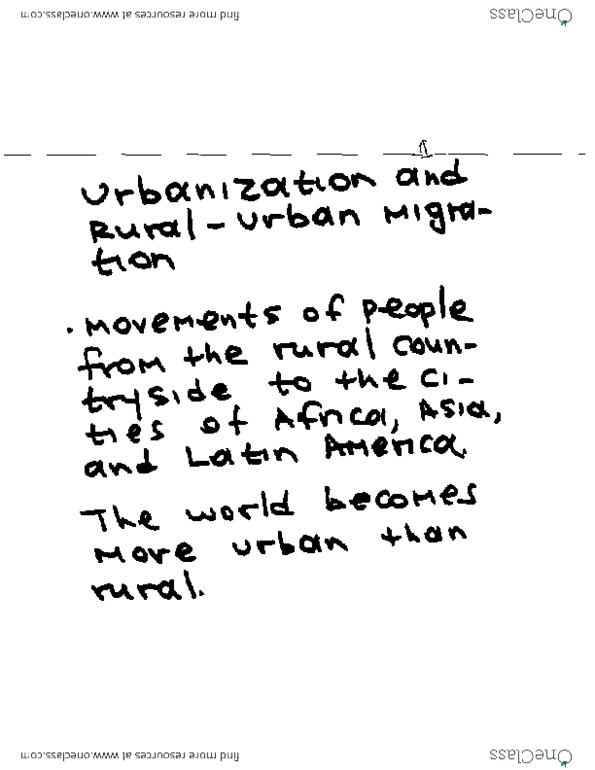 find more resources at www.oneclass.com
OneClass
1
Urbanization and
Rural-Urban Migra-
tion
. Movements of people
from the rural coun-
tryside to the ci-
ties of Africa, Asia,
and Latin America.
The world becomes
more urban than
rural.
find more resources at www.oneclass.com
OneClass